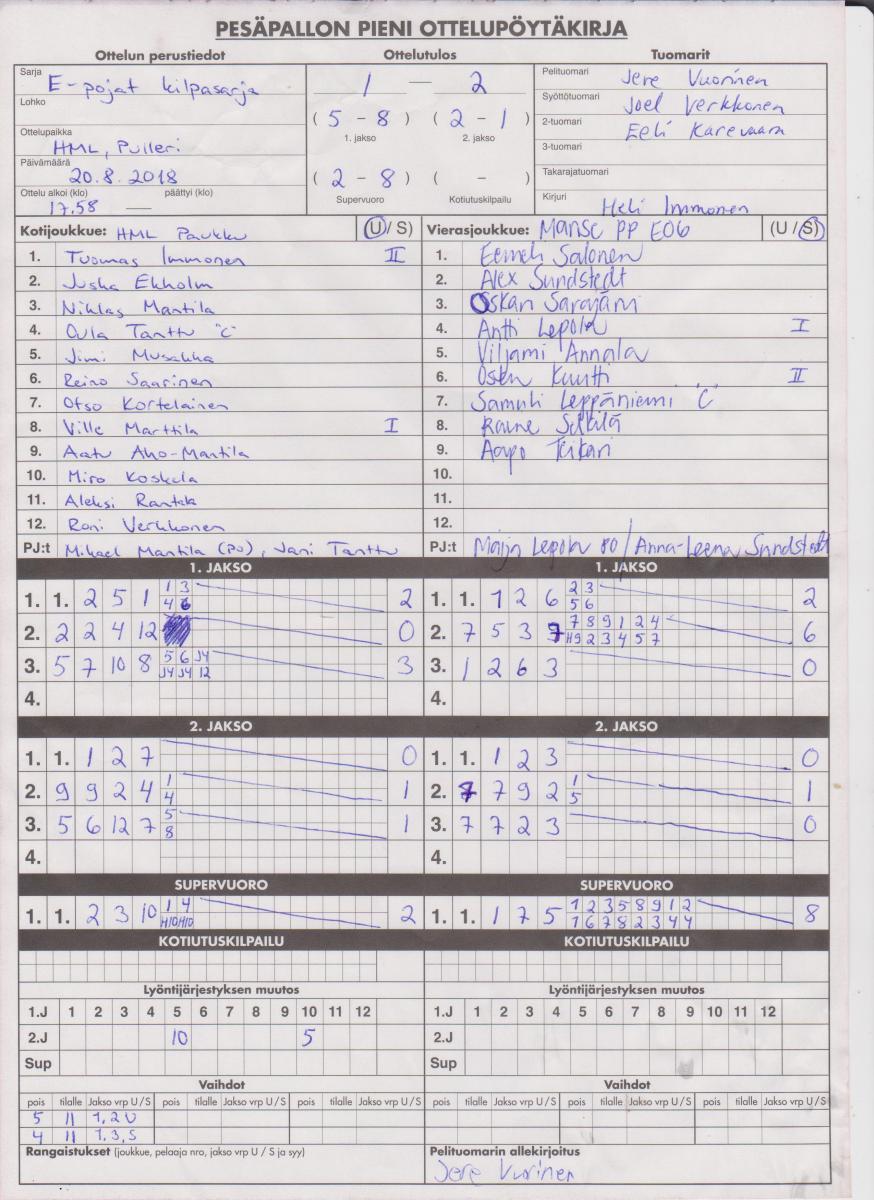 PESÄPALLON PIENI OTTELUPÖYTÄKIRJA
Ottelun perustiedot
Sarja
E-pojat kilpasarja
Lohko
Ottelupaikka
HML, Pulleri
Päivämäärä
20.8.2018
Ottelu alkoi (klo) päättyi (klo)
17.58
Ottelutulos
1 — 2
( 5 - 8 ) ( 2 - 1 )
1. jakso 2. jakso
( 2 - 8 ) ( - )
Supervuoro Kotiutuskilpailu
Tuomarit
Pelituomari Jere Vuorinen
Syöttötuomari Joel Verkkonen
2-tuomari Eeli Karevaara
3-tuomari
Takarajatuomari
Kirjuri Heli Immonen
Kotijoukkue: HML Paukku (U/ S)
1. Tuomas Immonen II
2. Juska Ekholm
3. Niklas Mantila
4. Oula Tanttu "C"
5. Jimi Musakka
6. Reino Saarinen
7. Otso Kortelainen
8. Ville Marttila I
9. Aatu Aho-Mantila
10. Miro Koskela
11. Aleksi Rantala
12. Roni Verkkonen
PJ:t Mikael Mantila (PO), Jani Tanttu
Vierasjoukkue: Manse PP E06 (U / S)
1. Eemeli Salonen
2. Alex Sundstedt
3. Oskari Sarajärvi
4. Antti Lepola I
5. Viljami Annala
6. Kuutti II
7. Samuli Leppäniemi "C"
8. Raine
9. Aapo Teikari
10.
11.
12.
PJ:t Maija Lepola / Anna-Leena Sundstedt
1. JAKSO
1. 1. 2 5 1 1 3 2
4 6
2. 2 2 4 12 0
3. 5 7 10 8 5 6 J4 3
J4 J4 12
4.
1. JAKSO
1. 1. 1 2 6 2 3 2
5 6
2. 7 5 3 7 7 8 9 1 2 4 6
H9 2 3 4 5 7
3. 1 2 6 3 0
4.
2. JAKSO
1. 1. 1 2 7 0
2. 9 9 2 4 1 1
4
3. 5 6 12 7 5 1
8
4.
2. JAKSO
1. 1. 1 2 3 0
2. 7 7 9 2 1 1
5
3. 7 7 2 3 0
4.
SUPERVUORO
1. 1. 2 3 10 1 4 2
H10 H10
SUPERVUORO
1. 1. 1 7 5 1 2 3 5 8 9 1 2 8
1 6 7 8 2 3 4 4
KOTIUTUSKILPAILU
KOTIUTUSKILPAILU
Lyöntijärjestyksen muutos
1.J 1 2 3 4 5 6 7 8 9 10 11 12
2.J 10 5
Sup
Lyöntijärjestyksen muutos
1.J 1 2 3 4 5 6 7 8 9 10 11 12
2.J
Sup
Vaihdot
pois tilalle Jakso vrp U / S pois tilalle Jakso vrp U / S pois tilalle Jakso vrp U / S
5 11 1, 2 U
4 11 1, 3, S
Vaihdot
pois tilalle Jakso vrp U / S pois tilalle Jakso vrp U / S pois tilalle Jakso vrp U / S
Rangaistukset (joukkue, pelaaja nro, jakso vrp U / S ja syy)
Pelituomarin allekirjoitus
Jere Vuorinen